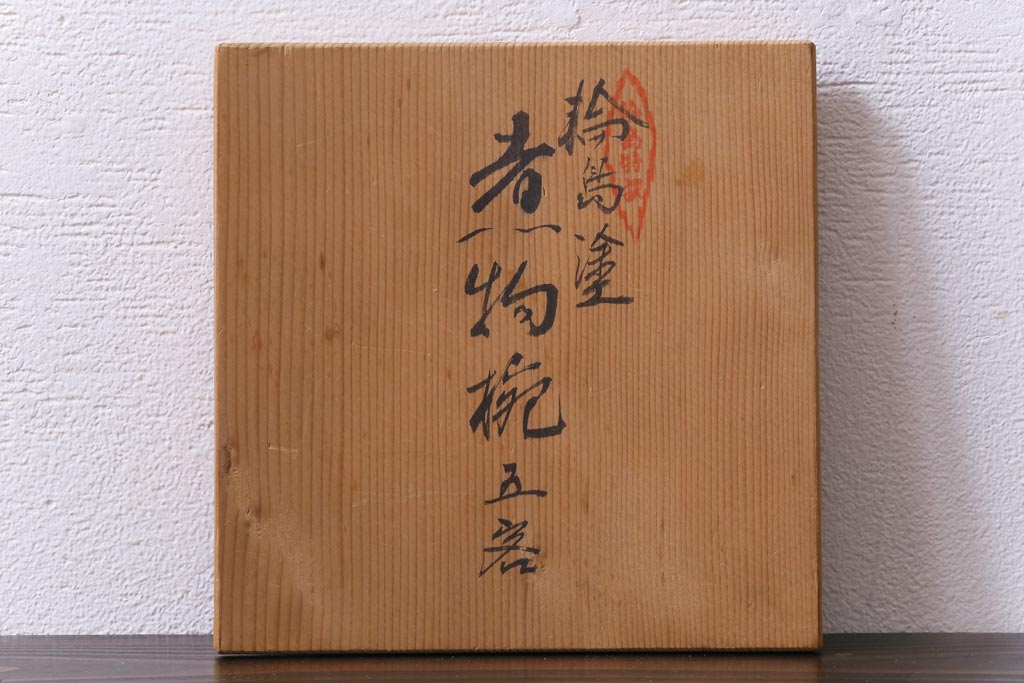 輪島塗
煮物椀 五客